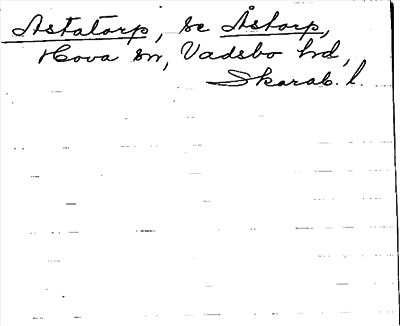 Astatorp, se Åstorp,
Hova sn, Vadsbo hd,
Skarab. l.